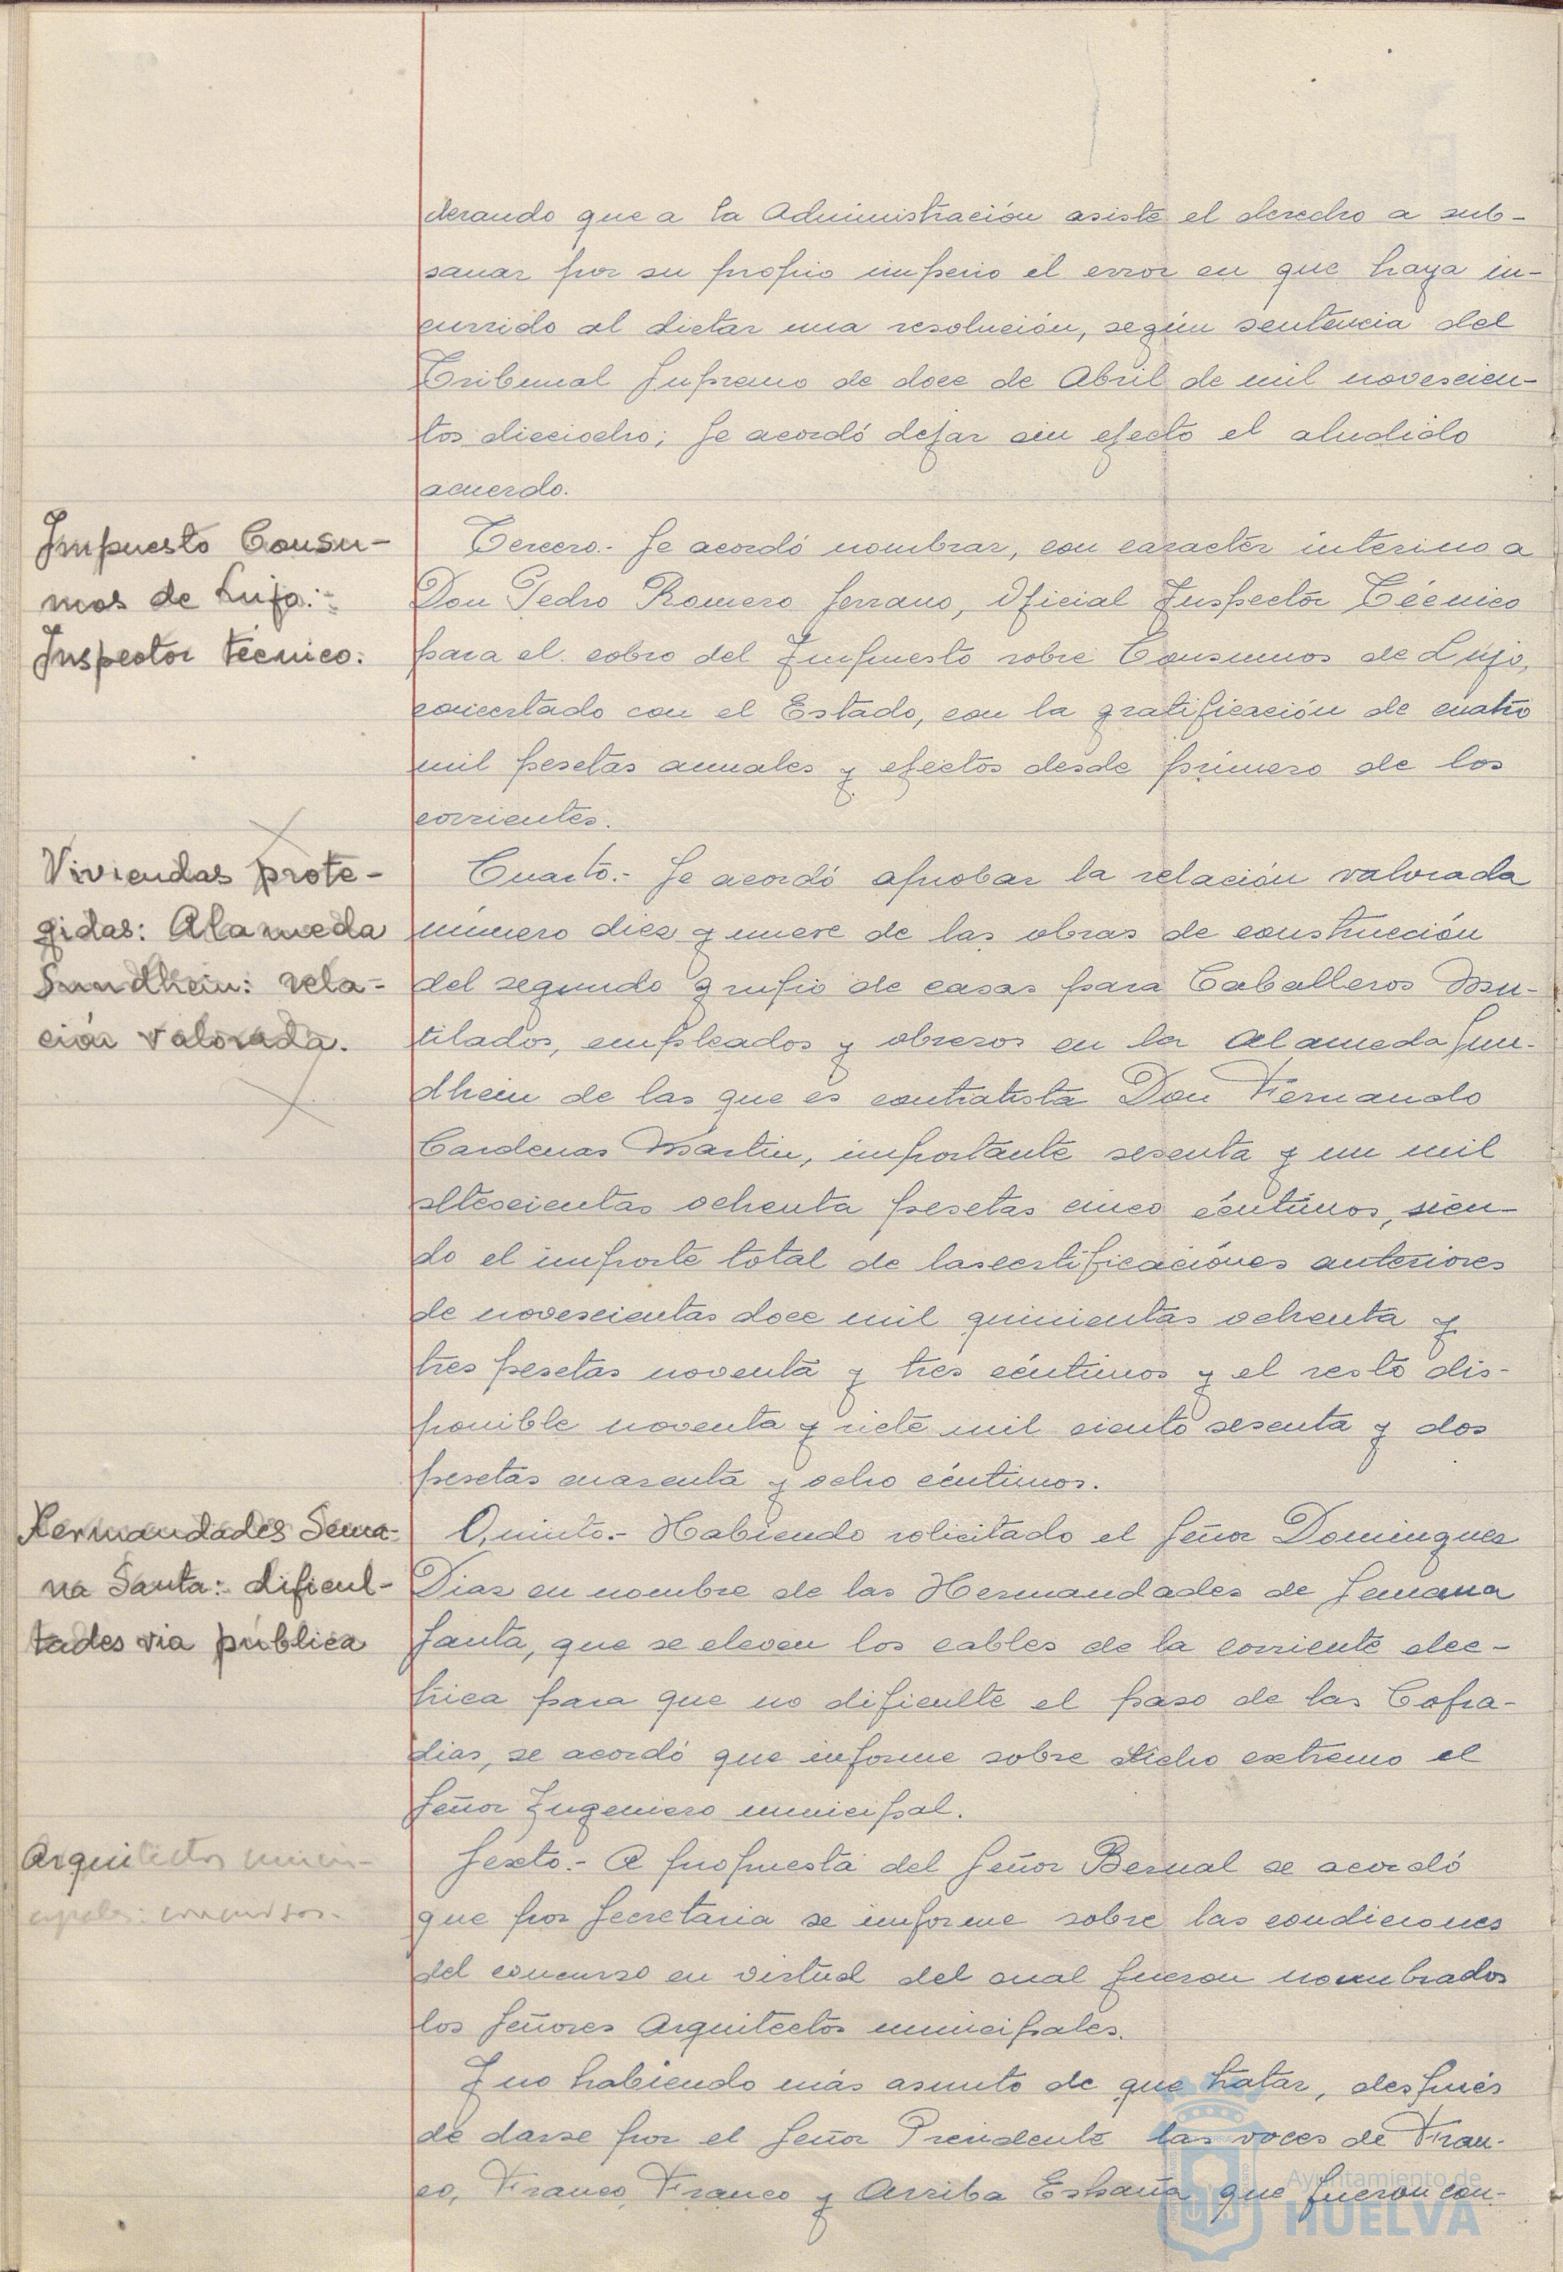 derando que a la Administración asiste el derecho a sub-
sanar por su propio imperio el error en que haya in-
currido al dictar una resolución, según sentencia del
Tribunal Supremo de doce de Abril de mil novescien-
tos dieciocho; Se acordó dejar sin efecto el aludido
acuerdo.
Impuesto Consu-
mos de Lujo:-
Inspector técnico.
Tercero.- Se acordó nombrar, con caracter interino a
Don Pedro Romero Serrano, Oficial Inspector Técnico
para el cobro del Impuesto sobre Consumos de Lujo,
concertado con el Estado, con la gratificación de cuatro
mil pesetas anuales y efectos desde primero de los
corrientes.
Viviendas prote-
gidas: Alameda
Sundhein: rela-
ción valorada.
Cuarto.- Se acordó aprobar la relación valorada
número diez y nueve de las obras de construcción
del segundo grupo de casas para Caballeros Mu-
tilados, empleados y obreros en la Alameda Sun-
dhein de las que es contratista Don Fernando
Cardenas Martin, importante sesenta y un mil
setescientas ochenta pesetas cinco céntimos, sien-
do el importe total de las certificaciónes anteriores
de novescientas doce mil quinientas ochenta y
tres pesetas noventa y tres céntimos y el resto dis-
ponible noventa y siete mil ciento sesenta y dos
pesetas cuarenta y ocho céntimos.
Hermandades Sema-
na Santa: dificul-
tades via pública
Quinto.- Habiendo solicitado el Señor Dominguez
Diaz en nombre de las Hermandades de Semana
Santa, que se eleven los cables de la corriente elec-
trica para que no dificulte el paso de las Cofra-
dias, se acordó que informe sobre dicho extremo el
Señor Ingeniero municipal.
Arquitectos munici-
cipales: concursos.
Sexto.- A propuesta del Señor Bernal se acordó
que por Secretaria se informe sobre las condiciones
del concurso en virtud del cual fueron nombrados
los Señores Arquitectos municipales.
Y no habiendo más asunto de que tratar, después
de darse por el Señor Presidente las voces de Fran-
co, Franco, Franco y Arriba España que fueron con-
Ayuntamiento de
HUELVA